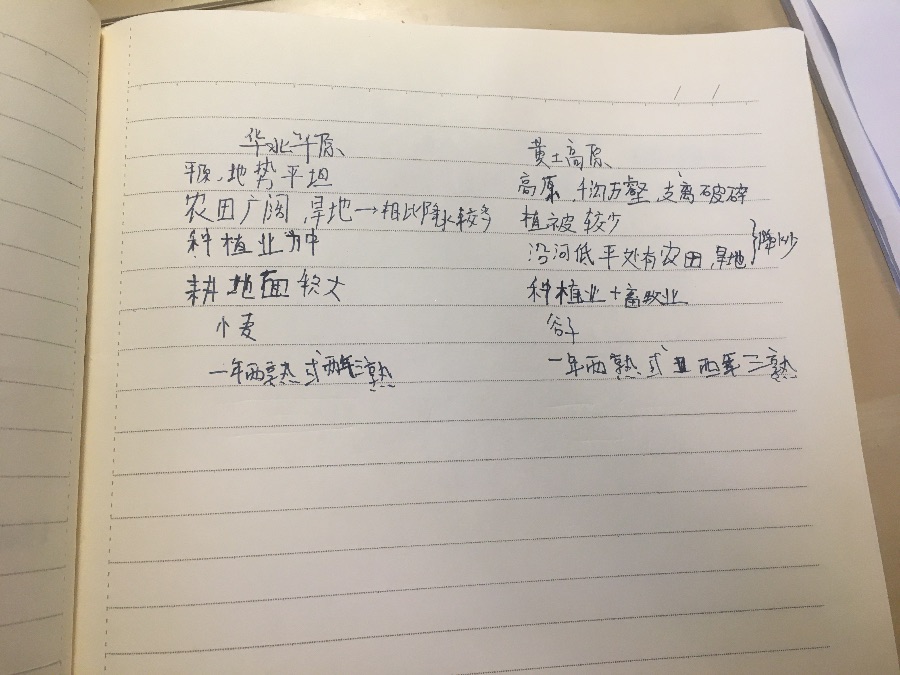 华北平原
平原，地势平坦
农田广阔，旱地→相比降水较多
种植业为
耕地面较大
小麦
一年两熟或两年三熟
黄土高原
高原，千沟万壑，支离破碎
植被较少
沿河低平处有农田，旱地 }降水少
种植业+畜牧业
谷子
一年两熟或两年三熟